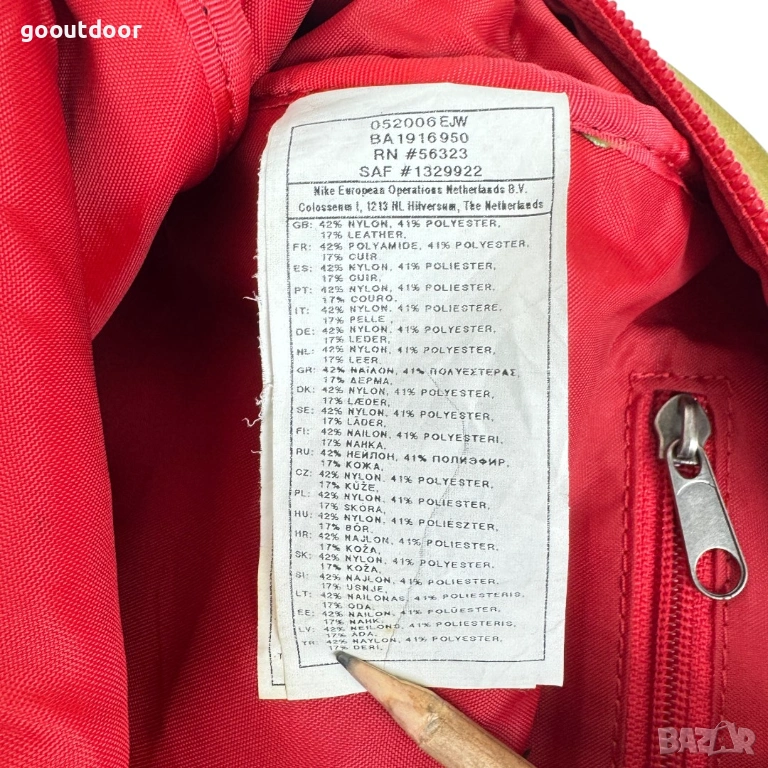 gooutdoor
052006EJW
BA1916950
RN #56323
SAF #1329922
Nike European Operations Netherlands B.V.
Colosseum 1, 1213 NL Hilversum, The Netherlands
GB: 42% NYLON, 41% POLYESTER,
17% LEATHER,
FR: 42% POLYAMIDE, 41% POLYESTER,
17% CUIR
ES: 42% NYLON, 41% POLIESTER,
17% CUIR,
PT: 42% NYLON, 41% POLIESTER,
17% COURO,
IT: 42% NYLON, 41% POLIESTERE,
17% PELLE,
DE: 42% NYLON, 41% POLYESTER,
17% LEDER,
NL: 42% NYLON, 41% POLYESTER,
17% LEER,
GR: 42% ΝΑΪΛΟΝ, 41% ΠΟΛΥΕΣΤΕΡΑΣ,
17% ΔΕΡΜΑ,
DK: 42% NYLON, 41% POLYESTER,
17% LÆDER,
SE: 42% NYLON, 41% POLYESTER,
17% LÄDER,
FI: 42% NAILON, 41% POLYESTERI,
17% NAHKA,
RU: 42% НЕЙЛОН, 41% ПОЛИЭФИР,
17% КОЖА,
CZ: 42% NYLON, 41% POLYESTER,
17% KŮŽE,
PL: 42% NYLON, 41% POLIESTER,
17% SKÓRA,
HU: 42% NYLON, 41% POLIESZTER,
17% BŐR,
HR: 42% NAJLON, 41% POLIESTER,
17% KOŽA,
SK: 42% NYLON, 41% POLYESTER,
17% KOŽA,
SI: 42% NAJLON, 41% POLIESTER,
17% USNJE,
LT: 42% NAILONAS, 41% POLIESTERIS,
17% ODA,
EE: 42% NAILON, 41% POLÜESTER,
17% NAHK,
LV: 42% NEILONS, 41% POLIESTERIS,
17% ĀDA,
TR: 42% NAYLON, 41% POLYESTER,
17% DERI,
BAZAR